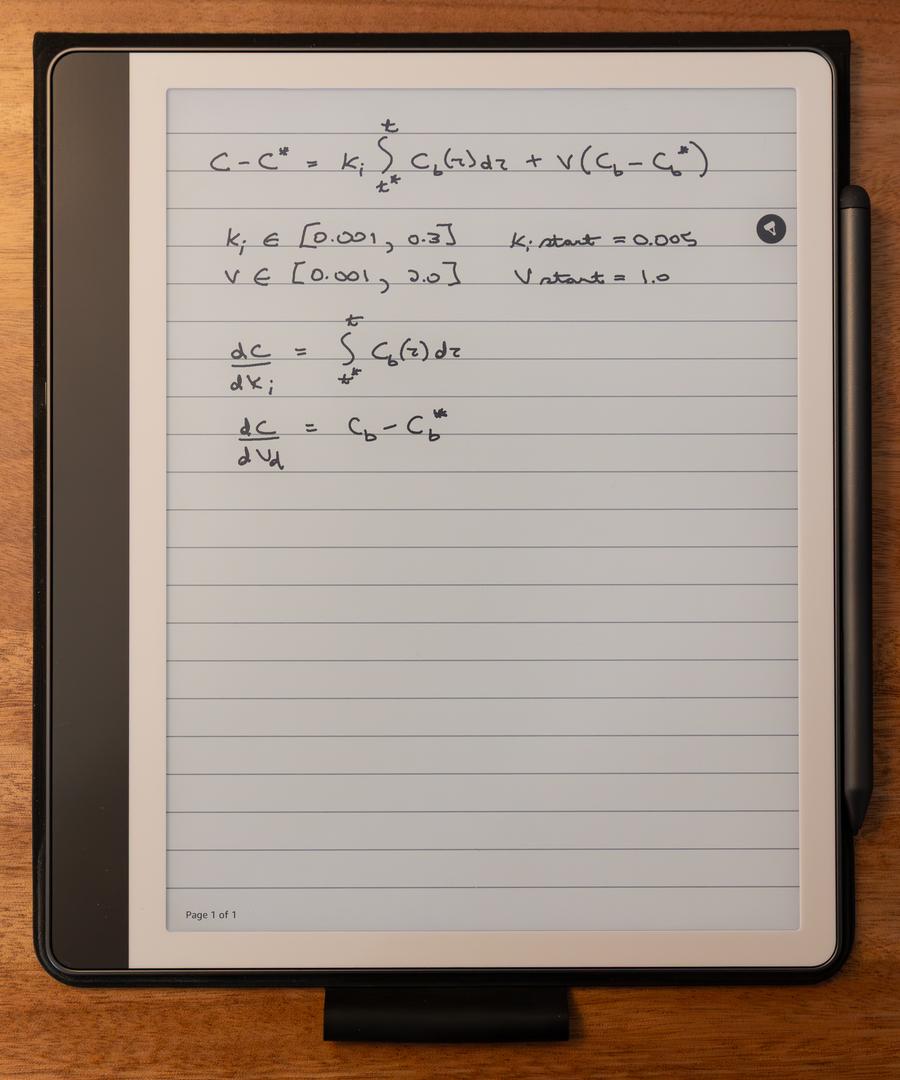 C - C* = Ki ∫_{t*}^{t} Cb(τ)dτ + V(Cb - Cb*)
Ki ∈ [0.001, 0.3] Ki start = 0.005
V ∈ [0.001, 2.0] V start = 1.0
dC/dKi = ∫_{t*}^{t} Cb(τ)dτ
dC/dVd = Cb - Cb*
Page 1 of 1